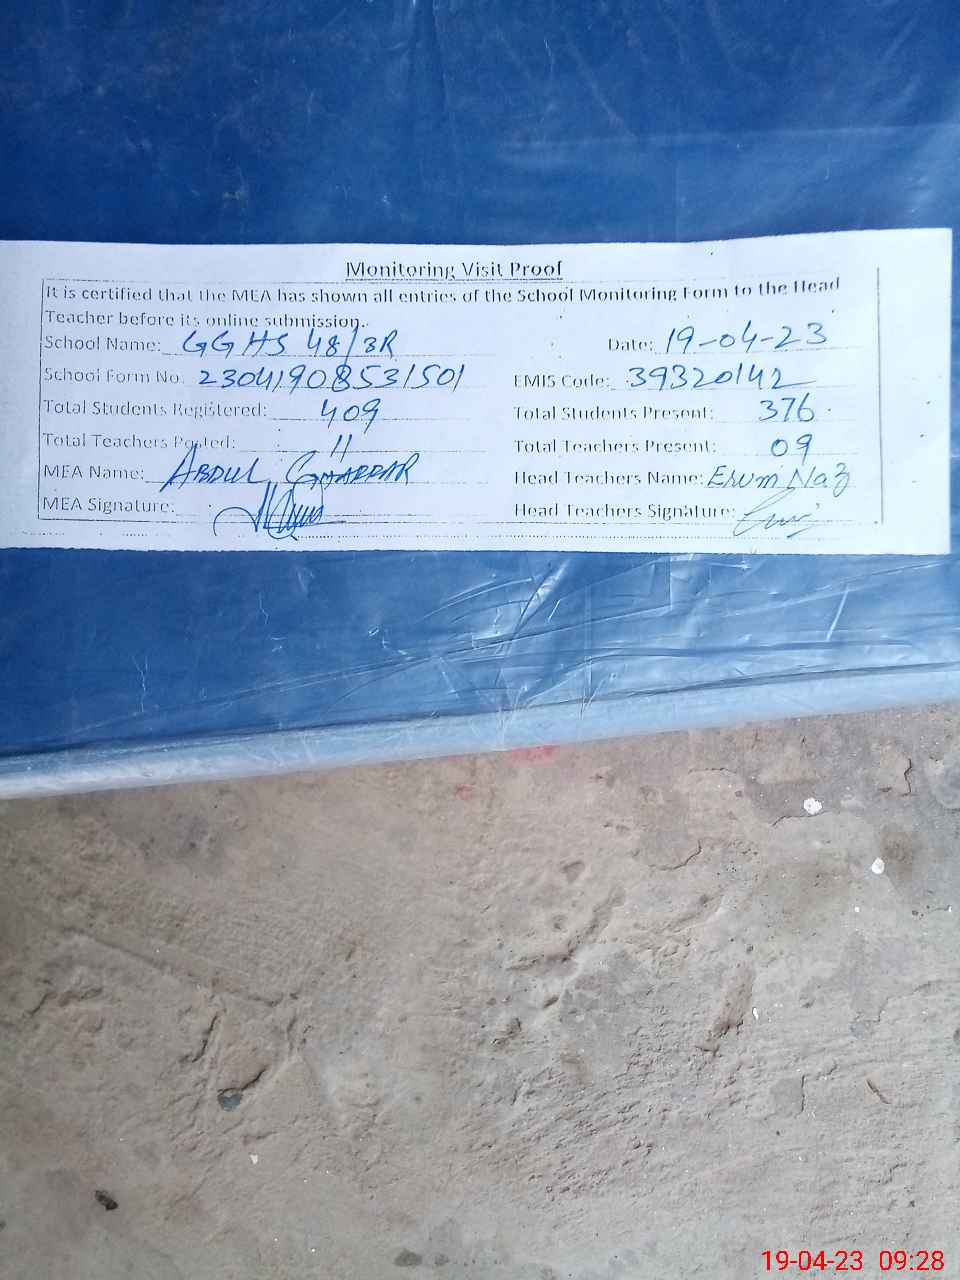 Monitoring Visit Proof
It is certified that the MEA has shown all entries of the School Monitoring Form to the Head
Teacher before its online submission.
School Name: GGHS 48/3R Date: 19-04-23
School Form No: 23041908531501 EMIS Code: 39320142
Total Students Registered: 409 Total Students Present: 376
Total Teachers Posted: 11 Total Teachers Present: 09
MEA Name: ABDUL GHAFFAR Head Teachers Name: Erum Naz
MEA Signature: Head Teachers Signature:
19-04-23 09:28